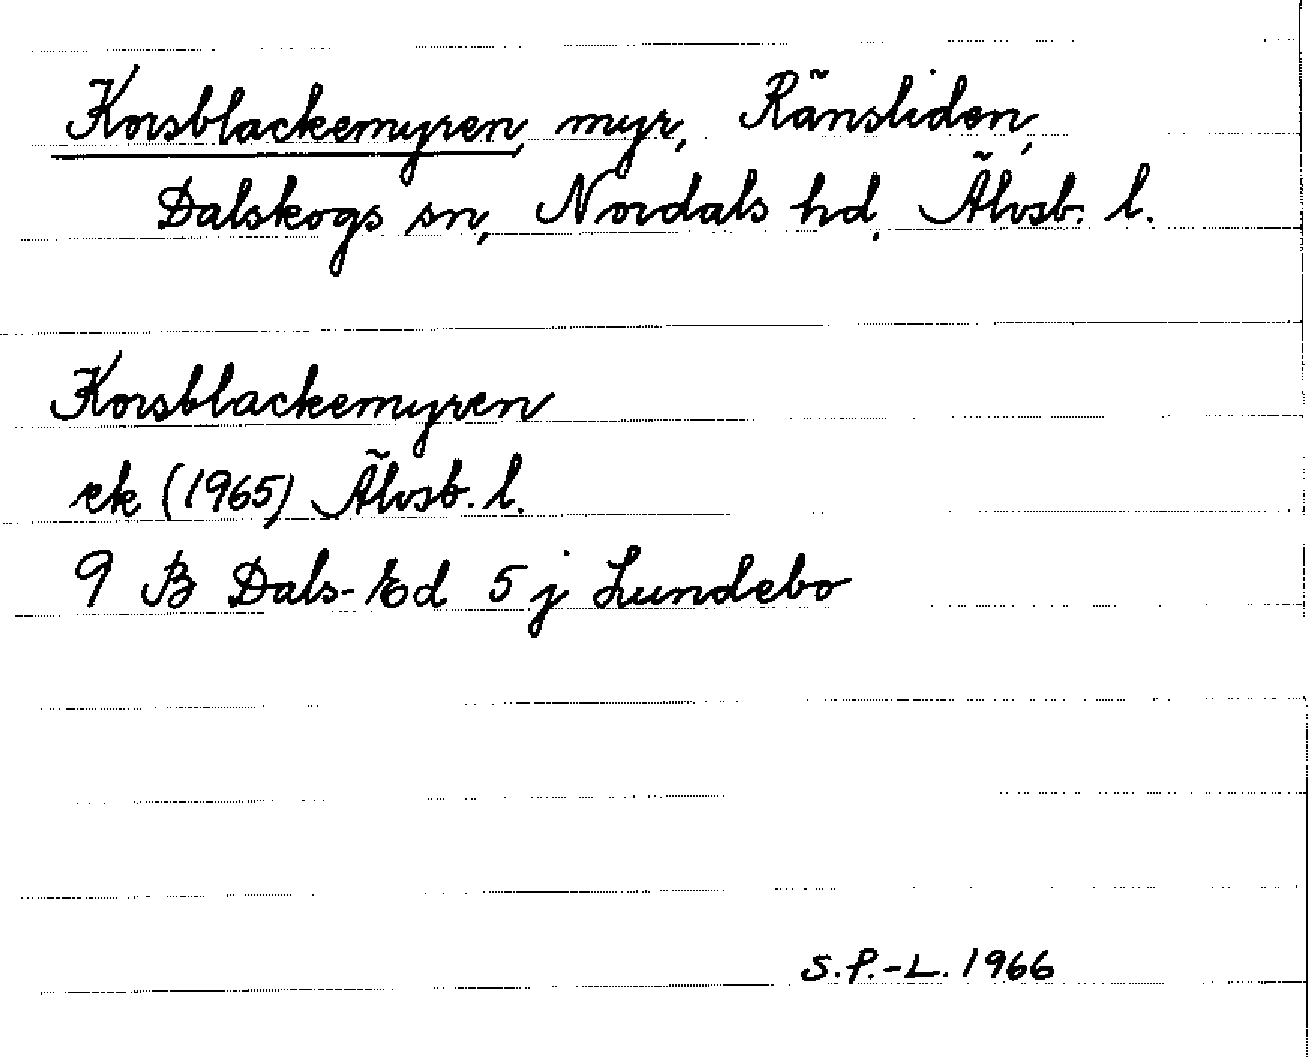 Korsblackemyren, myr, Ränsliden,
Dalskogs sn, Nordals hd, Älvsb. l.
Korsblackemyren
ek (1965) Älvsb. l.
9 B Dals-Ed 5 j Lundebo
S.P.-L. 1966